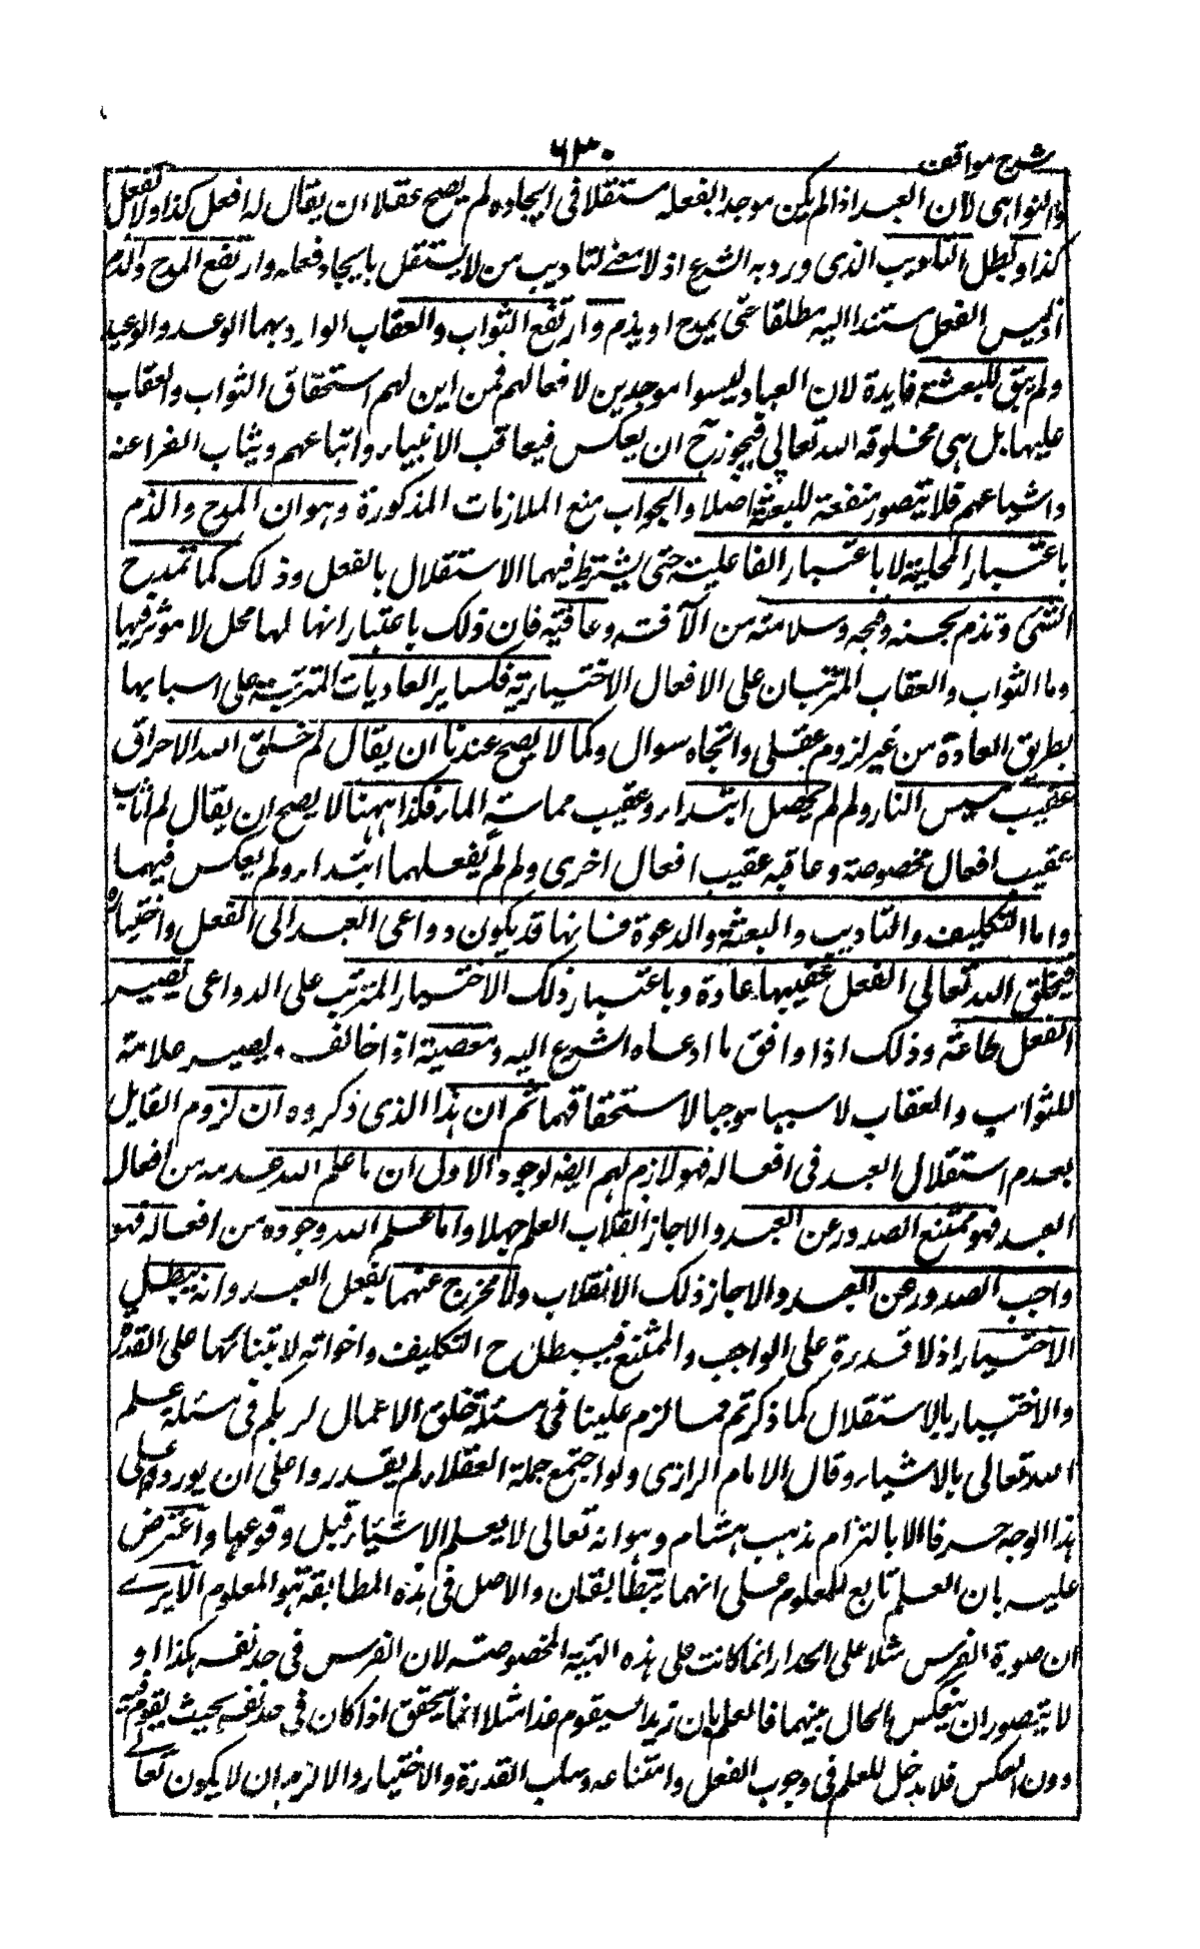 شرح مواقف
۶۳۰
والنواهى لان العبد اذا لم يكن موجدا لفعله مستقلا فى ايجاده لم يصح عقلا ان يقال له افعل كذا ولا تفعل
كذا وبطل التاديب الذى ورد به الشرع اذ لا معنے لتاديب من لا يستقل بايجاد فعله وارتفع المدح والذم
اذ ليس الفعل مستندا اليه مطلقا حتى يمدح او يذم وارتفع الثواب والعقاب الوارد بهما الوعد والوعيد
ولم يبق للبعثة فايدة لان العباد ليسوا موجدين لافعالهم فمن اين لهم استحقاق الثواب والعقاب
عليها بل هى مخلوقة الله تعالى فيجوز ح ان يعكس فيعاقب الانبياء واتباعهم ويثاب الفراعنة
واشياعهم فلا يتصور منفعة للبعثة اصلا والجواب منع الملازمات المذكورة وهو ان المدح والذم
باعتبار المحلية لا باعتبار الفاعلية حتى يشترط فيهما الاستقلال بالفعل وذلك كما تمدح
الشئ وتذم بحسنه وقبحه وسلامته من الآفة وعافيته فان ذلك باعتبار انها لها محل لا موثر فيها
وما الثواب والعقاب المترتبان على الافعال الاختيارية فكساير العاديات المترتبة على اسبابها
بطريق العادة من غير لزوم عقلى واتجاه سوال وكما لا يصح عندنا ان يقال لم خلق الله الاحراق
عقيب مسيس النار ولم لم يحصل ابتداء وعقيب مماسة الماء فكذا ههنا لا يصح ان يقال لم اثاب
عقيب افعال مخصوصة وعاقب عقيب افعال اخرى ولم لم يفعلهما ابتداء ولم يعكس فيهما
واما التكليف والتاديب والبعثة والدعوة فانها قد يكون دواعى العبد الى الفعل واختياره
فيخلق الله تعالى الفعل عقيبها عادة وباعتبار ذلك الاختيار المترتب على الدواعى يصير
الفعل طاعة وذلك اذا وافق ما ادعاه الشرع اليه ومعصية اذا خالفه ويصير علامة
للثواب والعقاب لا سببا موجبا لاستحقاقهما ثم ان هذا الذى ذكروه ان لزوم القايل
بعدم استقلال العبد فى افعاله فهو لازم لهم ايضه لوجوه الاول ان ما علم الله عدمه من افعال
العبد فهو ممتنع الصدور عن العبد والا جاز انقلاب العلم جهلا واما علم الله وجوده من افعاله فهو
واجب الصدور عن العبد والا جاز ذلك الانقلاب ولا مخرج عنهما لفعل العبد وانه يبطل
الاختيار اذ لا قدرة على الواجب والممتنع فيبطل ح التكليف واخواته لابتنائها على القدرة
والاختيار بالاستقلال كما ذكرتم فما لزم علينا فى مسئلة خلق الاعمال لزمكم فى مسئلة علم
الله تعالى بالاشياء وقال الامام الرازى ولو اجتمع جملة العقلاء لم يقدروا على ان يوردوا على
هذا الوجه حرفا الا بالتزام مذهب هشام وهو انه تعالى لا يعلم الاشياء قبل وقوعها واعترض
عليه بان العلم تابع للمعلوم على انهما يتطابقان والاصل فى هذه المطابقة هو المعلوم الا يرے
ان صورة الفرس مثلا على الجدار انما كانت على هذه الهيئة المخصوصة لان الفرس فى حد نفسه هكذا او
لا يتصور ان ينعكس الحال بينهما فالعلم بان زيدا سيقوم غدا مثلا انما يتحقق اذا كان فى حد نفسه بحيث يقوم فيه
دون العكس فلا مدخل للعلم فى وجوب الفعل وامتناعه وسلب القدرة والاختيار والا لزم ان لا يكون تعالے